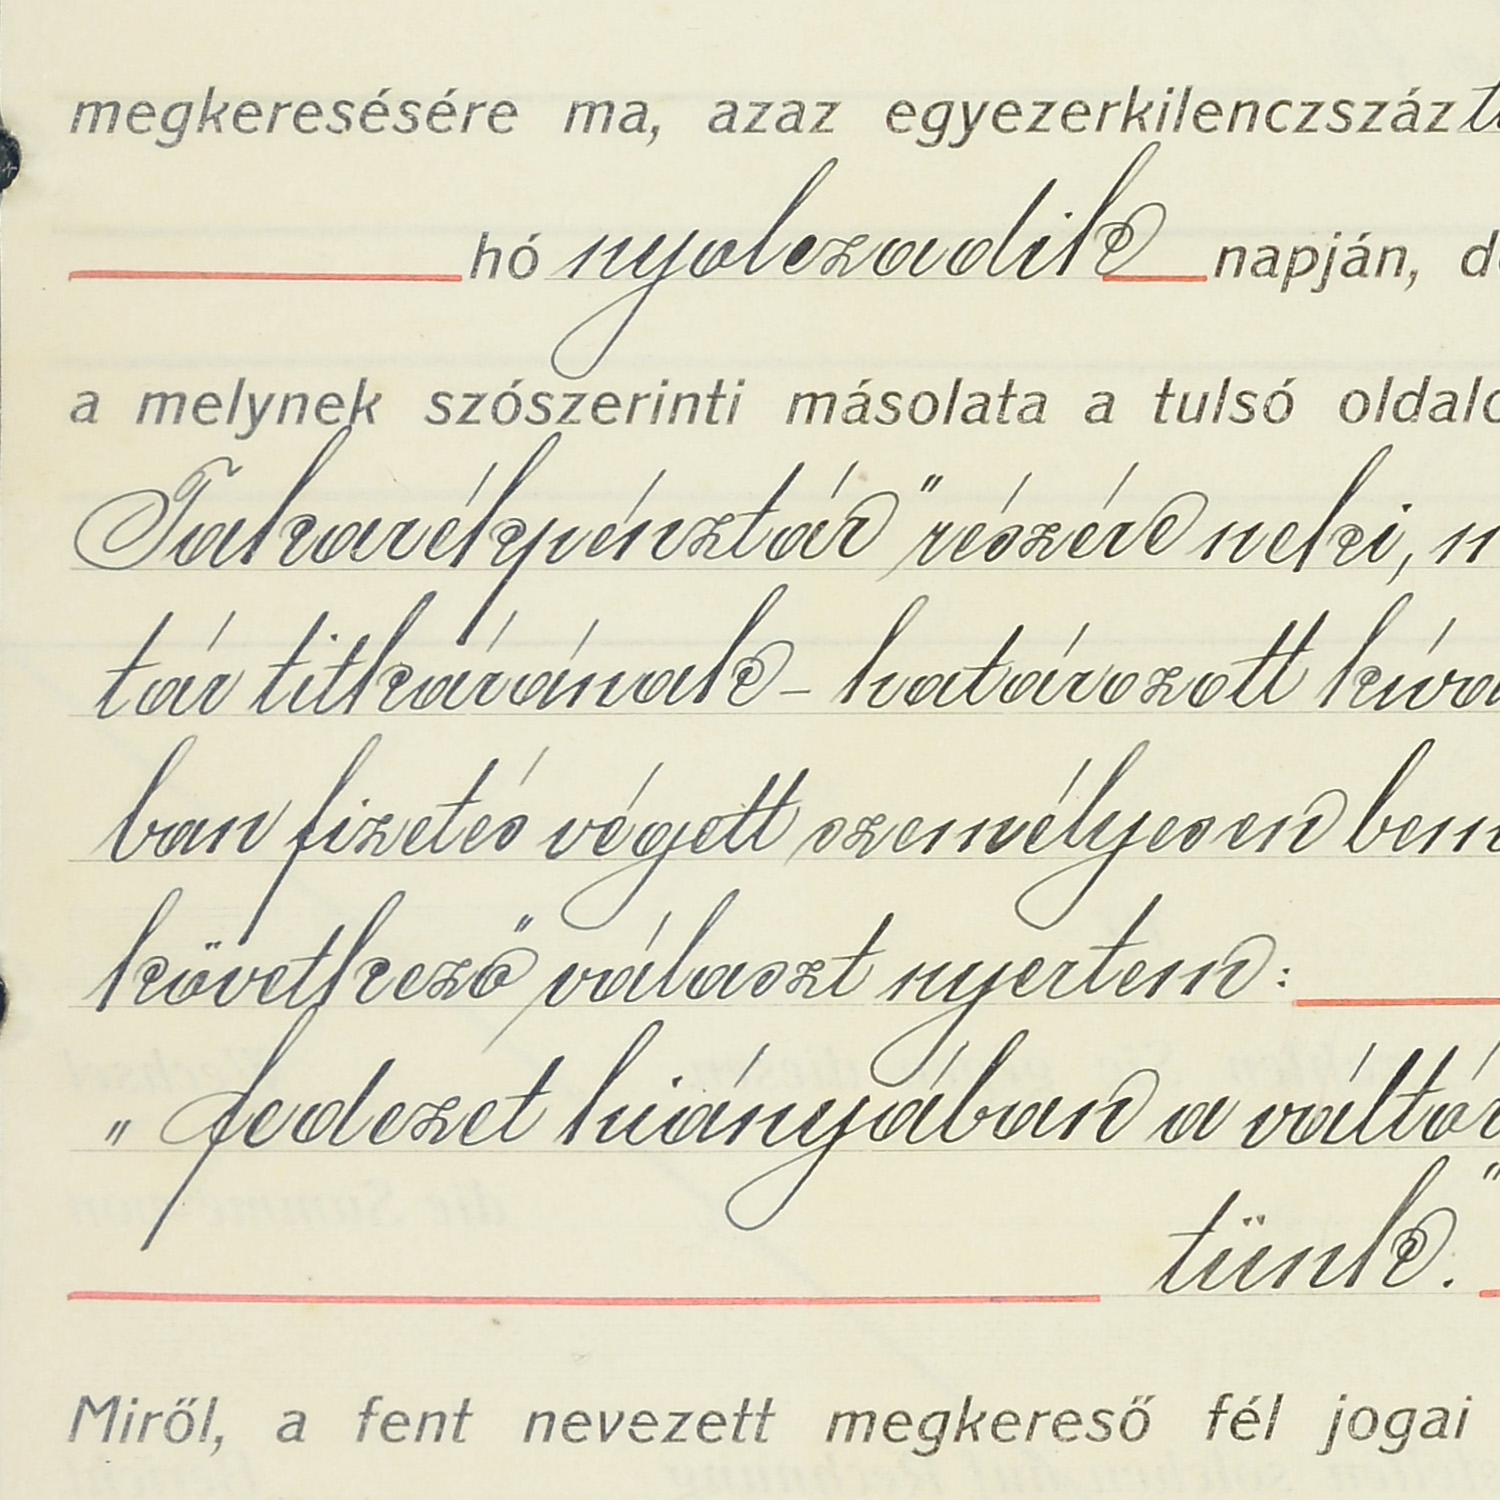 megkeresésére ma, azaz egyezerkilenczszáz
hó nyolczadik napján,
a melynek szószerinti másolata a tulsó
Takarékpénztár" részére neki,
tár titkárának - határozott
ban fizetés végett személyesen
következő választ nyertem:
„ fedezet hiányában a
tünk."
Miről, a fent nevezett megkereső fél jogai